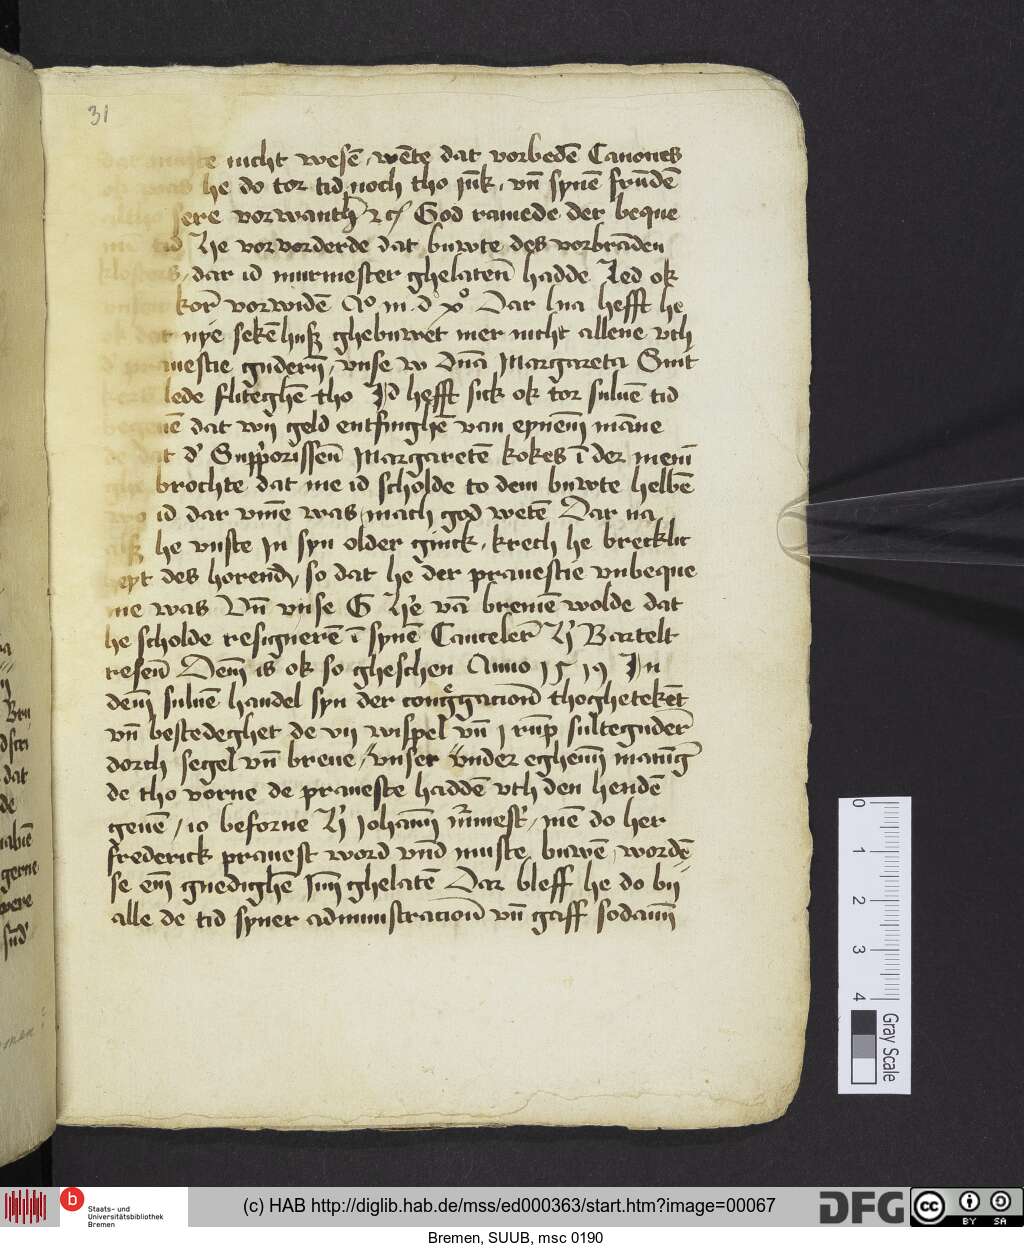 31
nicht wesē, wēte dat vorbedē Canones
he do tor tid noch tho jūk, vn̄ synē frūdē
sere vorwanth ꝛc God ramede der beque
tid He vorvorderde dat buwte des vorbrāden
klosters, dar id murmester ghelatēn hadde Led ok
korꝰ vorwidē Aº m dº xº Dar lna hefft he
nye sekēhuß ghebuwet mer nicht allene vth
d' pravestie guderꝫ, vnse w Dnā Margareta Smit
lede fliteghē tho Id hefft sick ok tor suluē tid
begeuē dat wij geld entfinghē van eynem māne
dat d' Suppriorissen̄ Margaretē kokes ī der menī
brochte dat me id scholde to dem buwte helbē
wo id dar vmē was mach god wetē Dar na
alß he vuste in syn older ginck, krech he brecklic
heyt des horendꝫ so dat he der pravestie vnbeque
me was Vn̄ vnse G H'e vā bremē wolde dat
he scholde resignerē ī synē Cancelerꝰ H' Bartelt
resen̄ Dem is ok so gheschen Anno 1519 In
dem suluē handel syn der congregacion̄ thoghetekēt
vn̄ bestedeghet de vij wispel vn̄ j rūp sulteguder
dorch segel vn̄ breue, vnser vnder eghenn manīg
de tho vorne de praveste haddē vth den hendē
geuē, io beforne H' Johann m̄mest', mē do her
frederick pravest word vnd muste buwē, wordē
se em gnedighē īm ghelatē Dar bleff he do bij
alle de tid syner administracion̄ vn̄ gaff sodann
0 1 2 3 4
Gray Scale
Staats- und Universitätsbibliothek Bremen
(c) HAB http://diglib.hab.de/mss/ed000363/start.htm?image=00067
DFG
cc BY SA
Bremen, SUUB, msc 0190